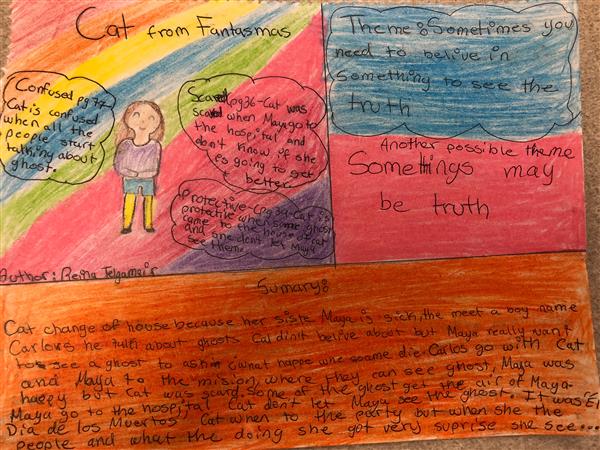 Cat from Fantasmas
Confused pg 77
Cat is confused
when all the
people start
talking about
ghost.
Scared pg36-Cat was
scared when Maya go to
the hospital and
don't know if she
is going to get
better.
Protective-(pg 39-Cat is
protective when some ghost
came to the house Cat
and she dont let Maya
see them.
Author: Reina Telgameir
Theme: Sometimes you
need to belive in
something to see the
truth
Another possible theme
Somethings may
be truth
Sumary:
Cat change of house because her siste Maya is sick, the meet a boy name
Carlows he talk about ghosts Cat din't belive about but Maya really want
to see a ghost to ask what happe whe soame die. Carlos go with Cat
and Maya to the mision, where they can see ghost, Maya was
happy but Cat was scard. Some of the ghost get the air of Maya.
Maya go to the hospital Cat don't let Maya see the ghost. It was El
Dia de los Muertos Cat when to the party but when she the
people and what the doing she got very suprise she see...